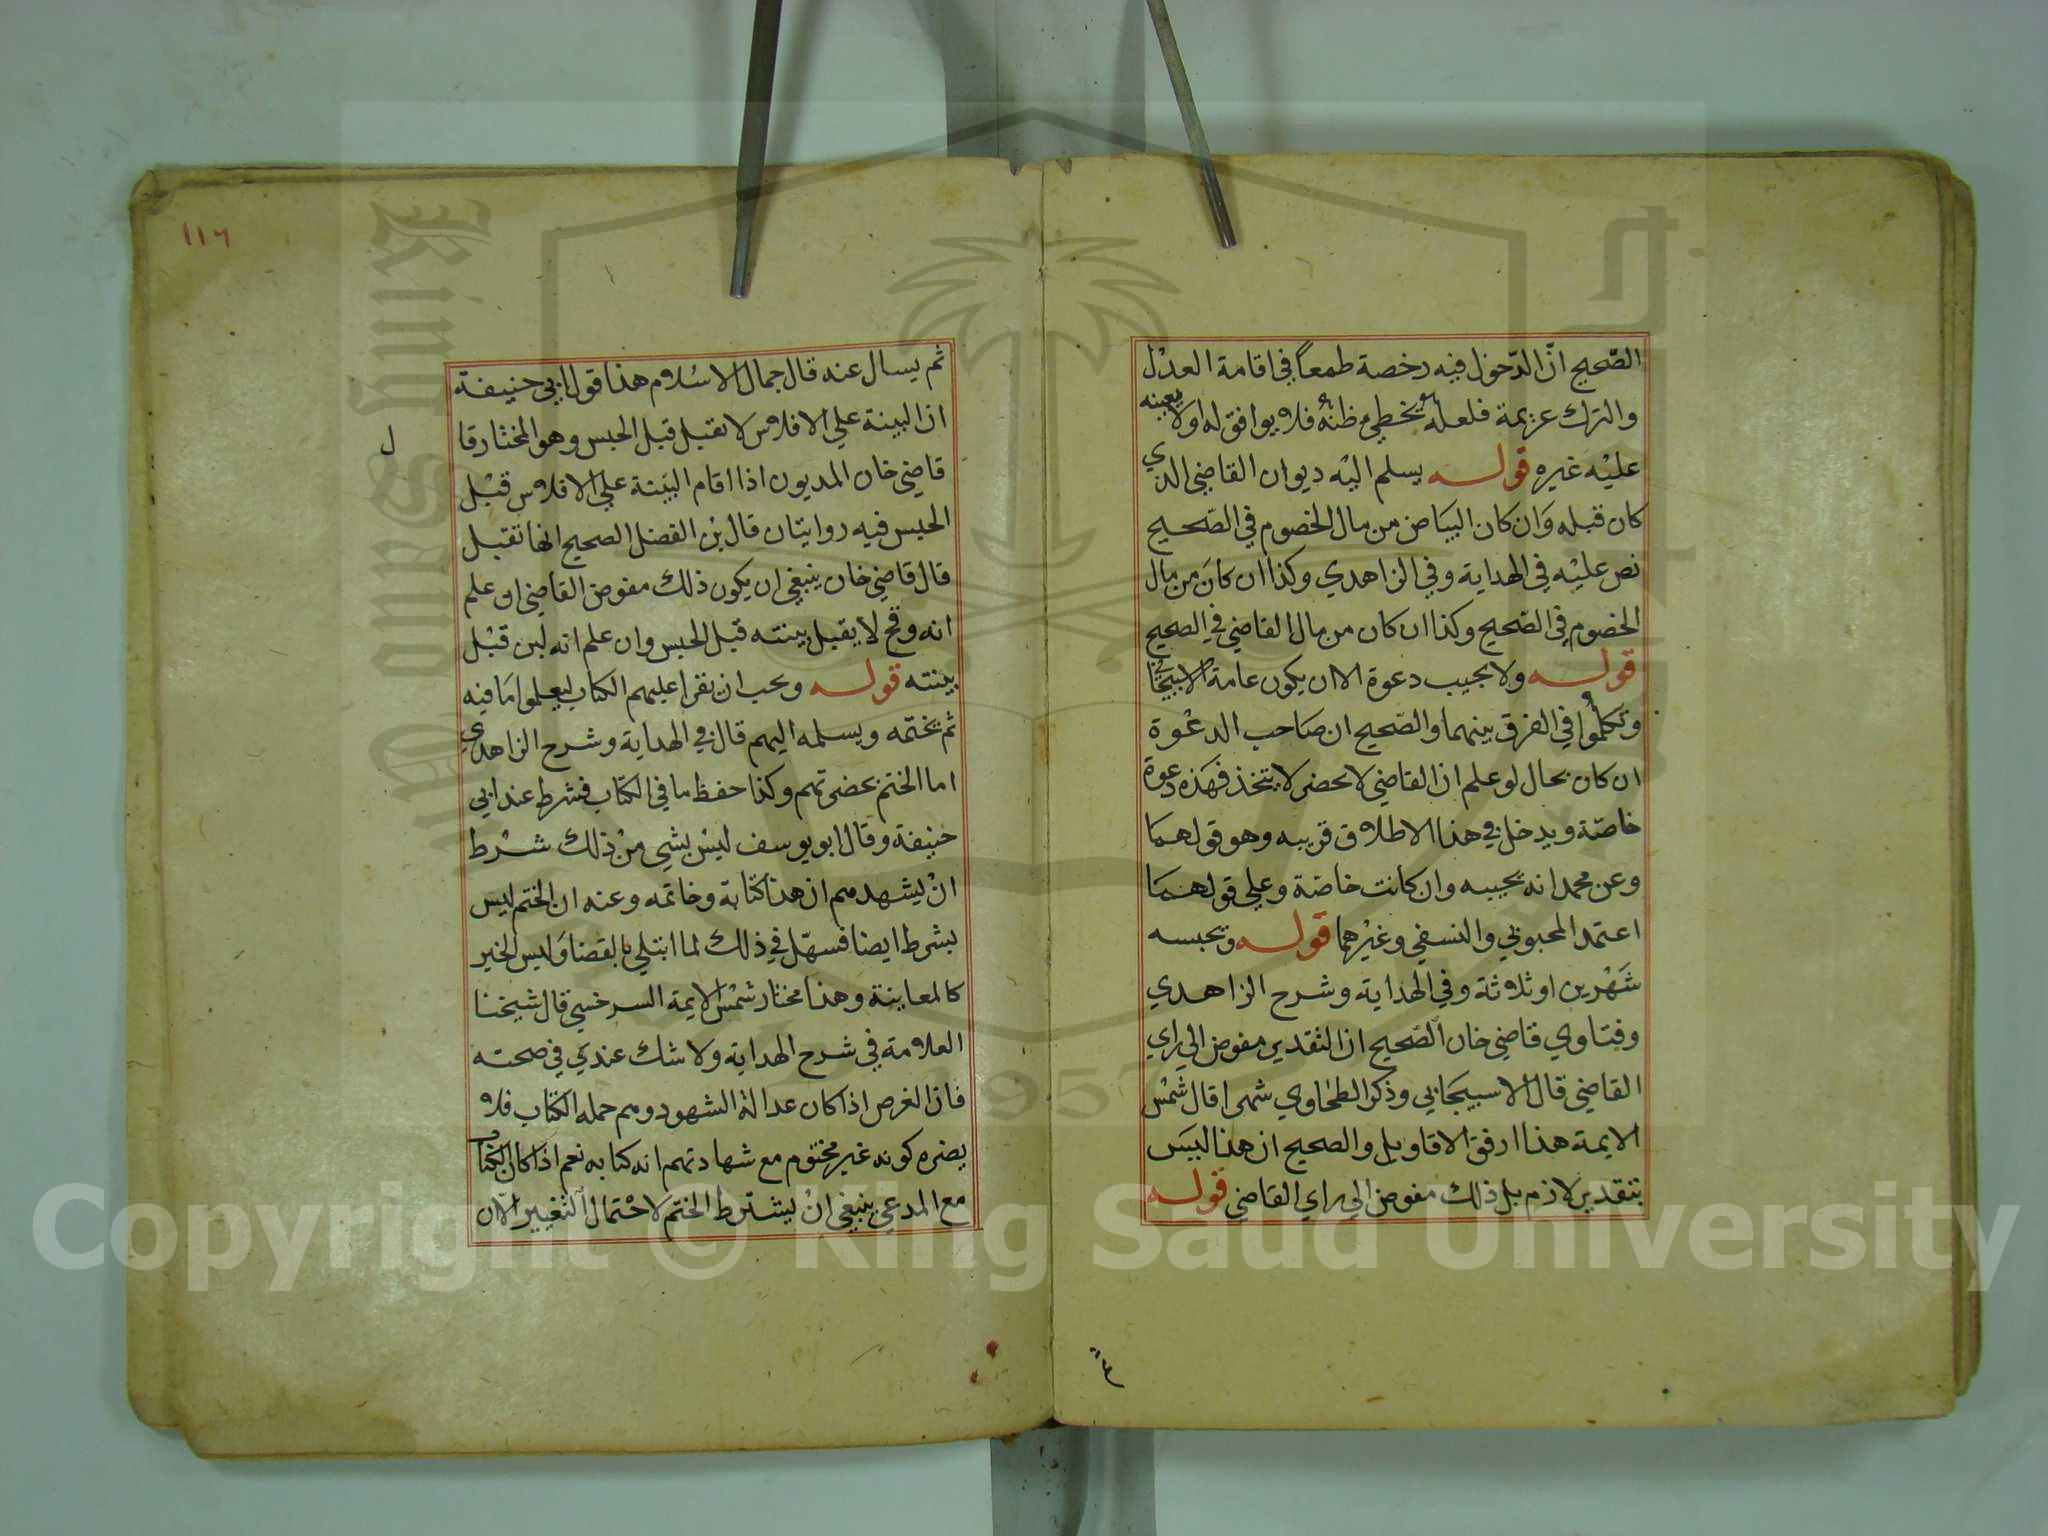 الصّحيح انّ الدّخول فيه رخصة طمعاً في اقامة العدْل
والترك عزيمة فلعله يخطئ ظنهُ فلا يوافق له اولا يعينه
عليْه غيره قولـه يسلم اليْه ديوان القاضي الذي
كان قبله وَان كان البيَاض من مال الخصوم في الصّحيح
نص عليْه في الهداية وفي الزاهدي وكذا ان كانَ من مال
الخصوم في الصّحيح وكذا ان كان من مال القاضي في الصحيح
قولـه ولا يجيب دعوة الا ان يكون عامة الاسبيجا
وتكلموا في الفرق بينهما والصّحيح ان صَاحب الدعْوة
ان كان بحال لو علم ان القاضي لا يحضر لا يتخذ فهَذه دعوة
خاصّة ويدخل في هذا الاطلاق قريبه وهو قولهمَا
وعن محمد انه يجيبه وان كانت خاصّة وعلي قولهمَا
اعتمد المحبوبي والنسفي وغيْرهما قولـه ويحبسه
شَهْرين او ثلاثة وفي الهداية وشرح الزاهدي
وفتاوي قاضي خان الصّحيح ان التقدير مفوض الي راي
القاضي قال الاسبيجَابي وذكر الطحاوي شهرا قال شمْس
الايمة هذا ارفق الاقاويل والصحيح ان هذا ليسَ
بتقدير لازم بل ذلك مفوض الي راي القاضي قولـه
١١٦
ثم يسال عنه قال جمال الاسْلام هذا قول ابي حنيفة
ان البينة علي الافلاس لا تقبل قبل الحبس وهو المختار قا
ل
قاضي خان المديون اذا اقام البيَنة علي الافلاس قبْل
الحبس فيه روايتان قال بْن الفضل الصحيح انها تقبل
قال قاضي خان ينبغي ان يكون ذلك مفوض القاضي ان علم
انه وقح لا يقبل بينته قبل الحبس وان علم انه لين قبْل
بينته قولـه ويحب ان يقرا عليهم الكتاب ليعلموا مَا فيه
ثم يختمه ويسلمه اليهم قال في الهداية وشرح الزاهدي
اما الختم بحضرتهم وكذا حفظ ما في الكتاب فشرط عند ابي
حنيفة وقال ابو يوسف ليْس بشي منْ ذلك شرْط
انْ يشهدهم ان هذا كتابة وخاتمه وعنه ان الختم ليس
بشرط ايضا فسهّل في ذلك لما ابتلي بالقضا وَليس الخبر
كالمعاينة وهذا مختار شمْس الايمة السرخسي قال شيخنا
العلامة في شرح الهداية ولا شك عندي في صحته
فان الغرض اذا كان عدالة الشهود وهم حمله الكتاب فلا
يضره كونه غير مختوم مع شهادتهم انه كتابه نعم اذا كان الكتاب
مع المدعي ينبغي انْ يشترط الختم لاحْتمال التغيير الّا ان
Copyright © King Saud University
King Saud University
1957